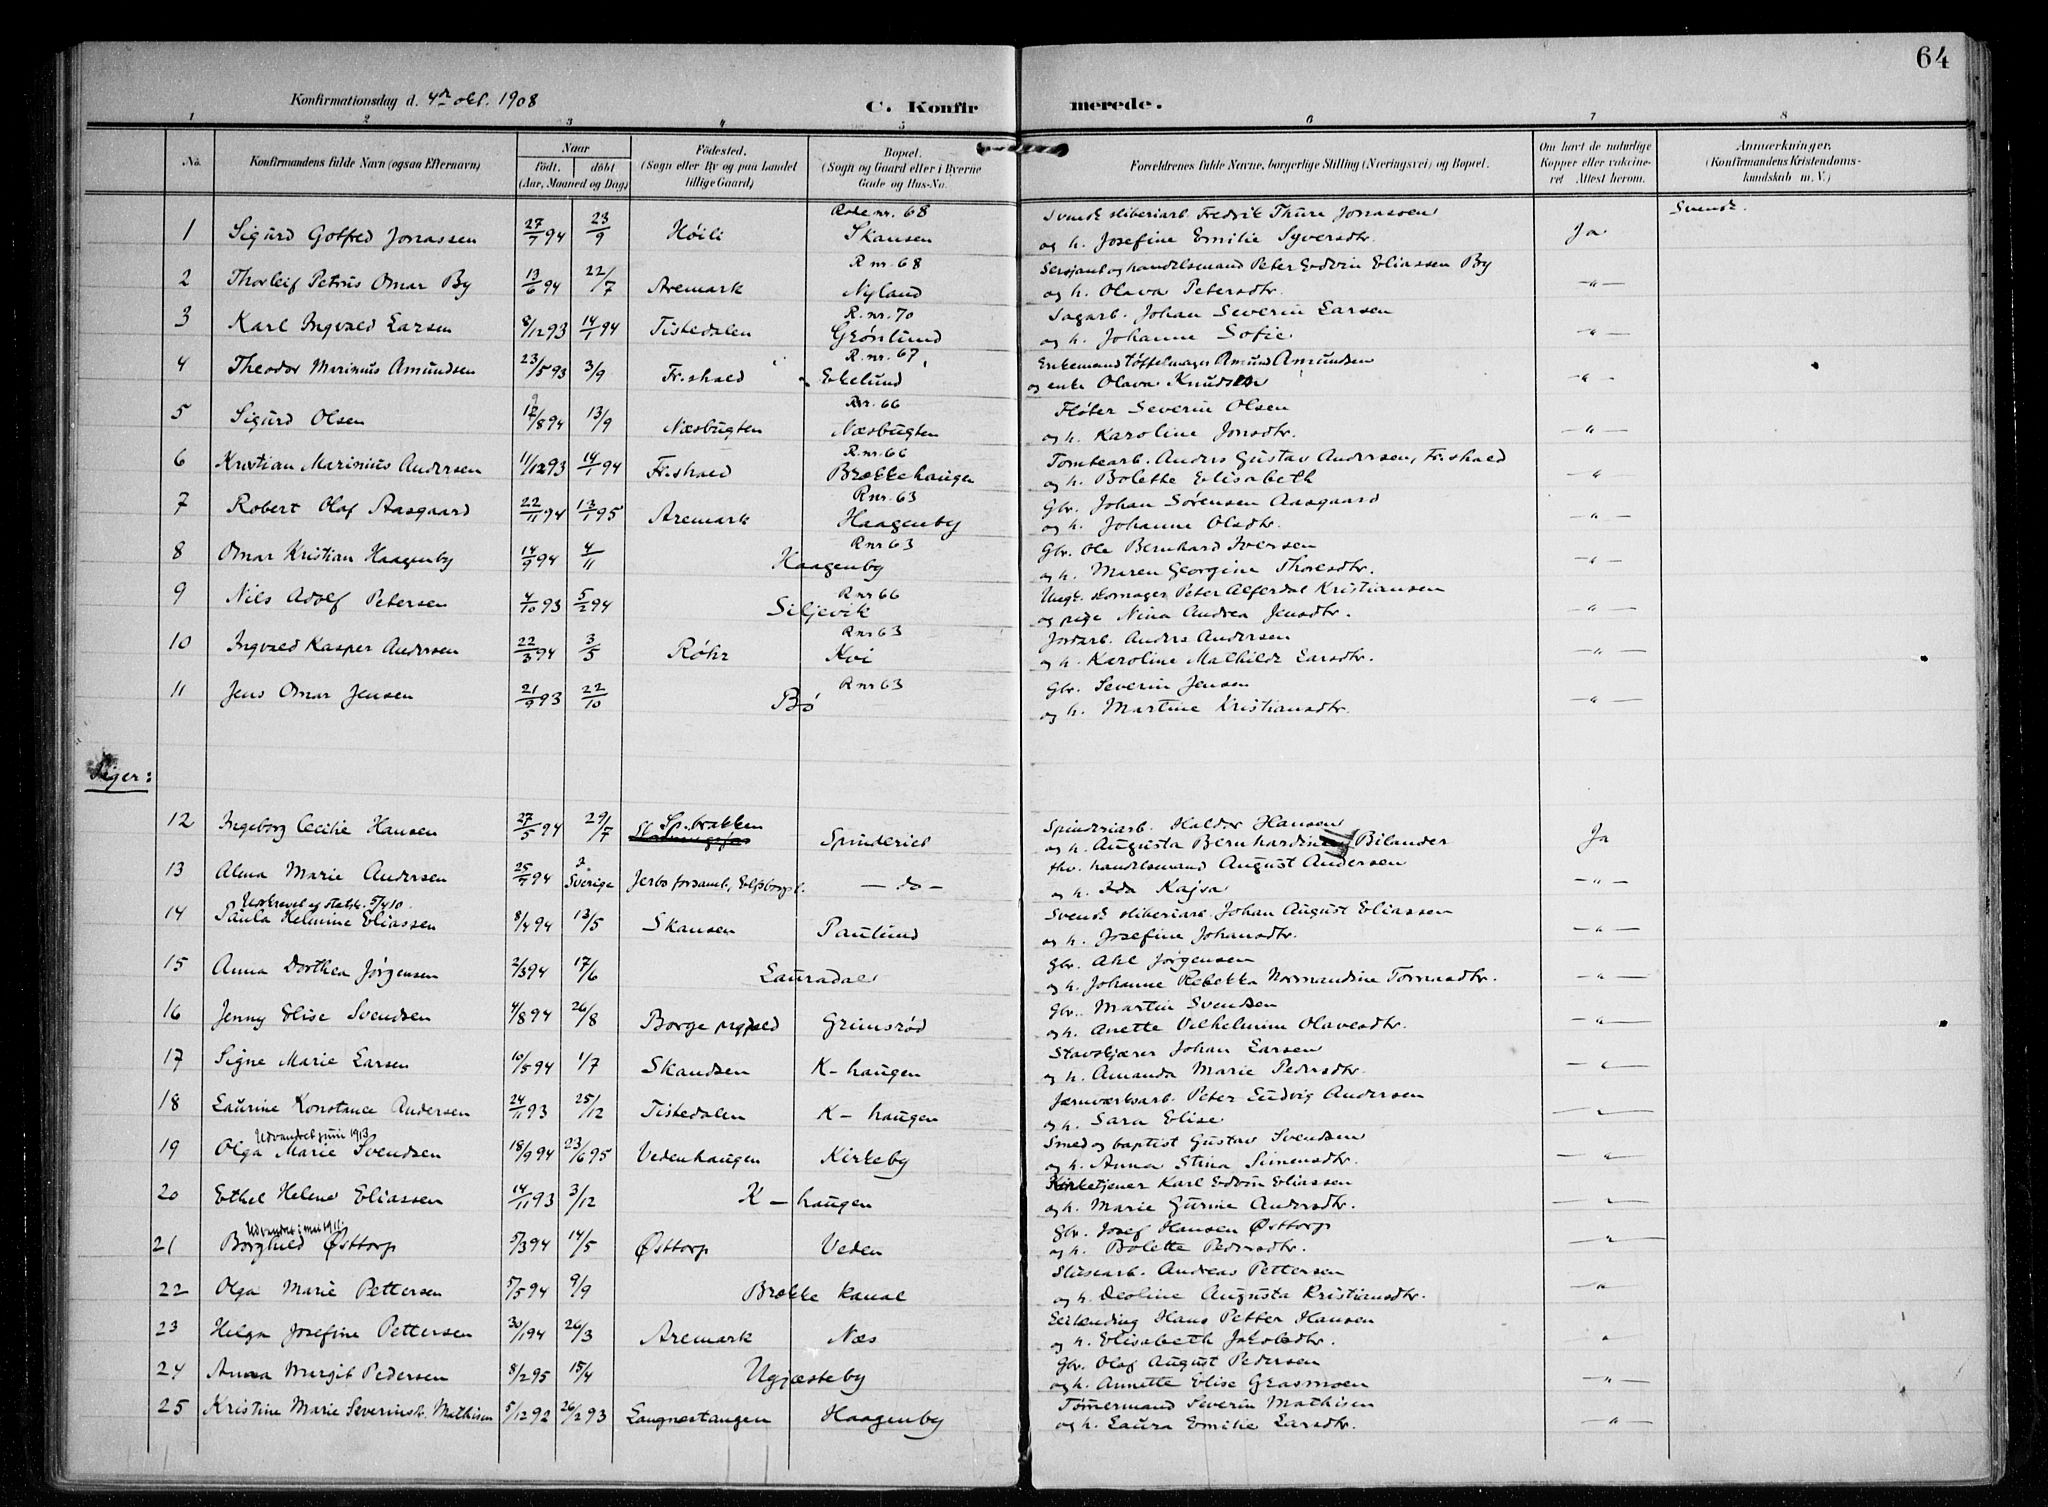 64
Konfirmationsdag d. 4de okt. 1908
C. Konfir merede.
1 2 3 4 5 6 7 8
No. Konfirmandens fulde Navn (ogsaa Efternavn) Naar født. døbt (Aar, Maaned og Dag) Fødested. (Sogn eller By og paa Landet tillige Gaard) Bopæl. (Sogn og Gaard eller i Byerne Gade og Hus-No. Forældrenes fulde Navne, borgerlige Stilling (Næringsvei) og Bopæl. Om havt de naturlige Kopper eller vaccineret. Attest herom. Anmærkninger. (Konfirmandens Kristendomskundskab m. V.)
Rode nr. 68 Svensk sliberiarb. Fredrik Thure Jonassen Svensk.
1 Sigurd Gotfred Jonassen 27/7 94 23/9 Høili Skansen og h. Josefine Emilie Syversdtr. Ja
R nr. 68 Sersjant og handelsmand Peter Edvin Eliassen By
2 Thorleif Petrus Omar By 13/6 94 22/7 Aremark Nyland og h. Olava Petersdtr. -"-
R. nr. 70 Sagarb. Johan Severin Larsen
3 Karl Ingvald Larsen 8/12 93 14/1 94 Tistedalen Grønlund og h. Johanne Sofie -"-
R. nr. 67 Enkemand tøffelmager Amund Amundsen
4 Theodor Marinius Amundsen 23/5 93 3/9 Fr.shald Ekelund og enke Olava Knudsen -"-
R nr. 66 Fløter Severin Olsen
5 Sigurd Olsen 12/8 94 13/9 Næsbugten Næsbugten og h. Karoline Jonsdtr. -"-
R. nr. 66 Tomtearb. Anders Gustav Andersen, Fr.shald
6 Kristian Marinius Andersen 11/12 93 14/1 94 Fr.shald Brækkehaugen og h. Bolette Elisabeth "
R nr. 63 Gbr. Johan Sørensen Aasgaard
7 Robert Olaf Aasgaard 22/11 94 13/1 95 Aremark Haagenby og h. Johanne Olsdtr. -"-
R nr 63 Gbr. Ole Bernhard Iversen
8 Omar Kristian Haagenby 14/9 94 4/11 Haagenby og h. Maren Georgine Thoresdtr. -"-
R nr 66 Ungk. skomager Peter Alferdal Kristiansen
9 Nils Adolf Petersen 4/10 93 5/2 94 Siljevik og pige Nina Andrea Jensdtr. -"-
R nr 63 Jordarb. Anders Andersen
10 Ingvald Kasper Andersen 22/3 94 3/5 Røhr Kvi og h. Karoline Mathilde Larsdtr. -"-
R nr 63 Gbr. Severin Jensen
11 Jens Omar Jensen 21/9 93 22/10 Bø og h. Martine Kristiansdtr. -"-
Piger:
Sp.brakken Spinderiarb. Haldor Hansen
12 Ingeborg Cecilie Hansen 27/5 94 29/7 Spinderiet og h. Augusta Bernhardine Bilander Ja
fhv. handelsmand August Andersen
13 Alma Marie Andersen 25/7 94 i Sverige Jerbo forsaml., Elfsborg l. - do - og h. Ida Kajsa -"-
Udskrevet og statsk. 5/4 10. Svensk sliberiarb. Johan August Eliassen
14 Paula Helmine Eliassen 8/4 94 13/5 Skansen Paulund og h. Josefine Johansdtr. -"-
Gbr. Ahl Jørgensen
15 Anna Dorthea Jørgensen 2/3 94 17/6 Lauradal og h. Johanne Rebekka Normandine Tomasdtr. -"-
Gbr. Martin Svendsen
16 Jenny Elise Svendsen 4/8 94 26/8 Borge prgjæld Grimsrød og h. Anette Vilhelmine Olavesdtr. -"-
Stavskjærer Johan Larsen
17 Signe Marie Larsen 10/5 94 1/7 Skandsen K-haugen og h. Amanda Marie Pedersdtr. -"-
Jærnværksarb. Peter Ludvig Andersen
18 Laurine Konstance Andersen 24/11 93 25/12 Tistedalen K-haugen og h. Sara Elise -"-
Udvandret juni 1913 Smed og baptist Gustav Svendsen
19 Olga Marie Svendsen 18/9 94 23/6 95 Vedenhaugen Kirkeby og h. Anna Stina Simensdtr. -"-
Kirketjener Karl Edvin Eliassen
20 Ethel Helene Eliassen 14/11 93 3/12 K-haugen og h. Marie Gurine Andersdtr. -"-
Udvandret i mai 1911. Gbr. Josef Hansen Østtorp
21 Borghild Østtorp 5/3 94 14/5 Østtorp Veden og h. Bolette Pedersdtr. -"-
Slusearb. Andreas Pettersen
22 Olga Marie Pettersen 5/5 94 9/9 Brække kanal og h. Deoline Augusta Kristiansdtr. -"-
Leilending Hans Petter Hansen
23 Helga Josefine Pettersen 30/1 94 26/3 Aremark Næs og h. Elisabeth Jakobsdtr. "
Gbr. Olaf August Pedersen
24 Anna Margit Pedersen 8/2 95 15/4 Ugjesteby og h. Annette Elise Grasmoen -"-
Tømmermand Severin Mathisen
25 Kristine Marie Severinsk. Mathisen 5/12 92 26/2 93 Langnestangen Haagenby og h. Laura Emilie Larsdtr. -"-